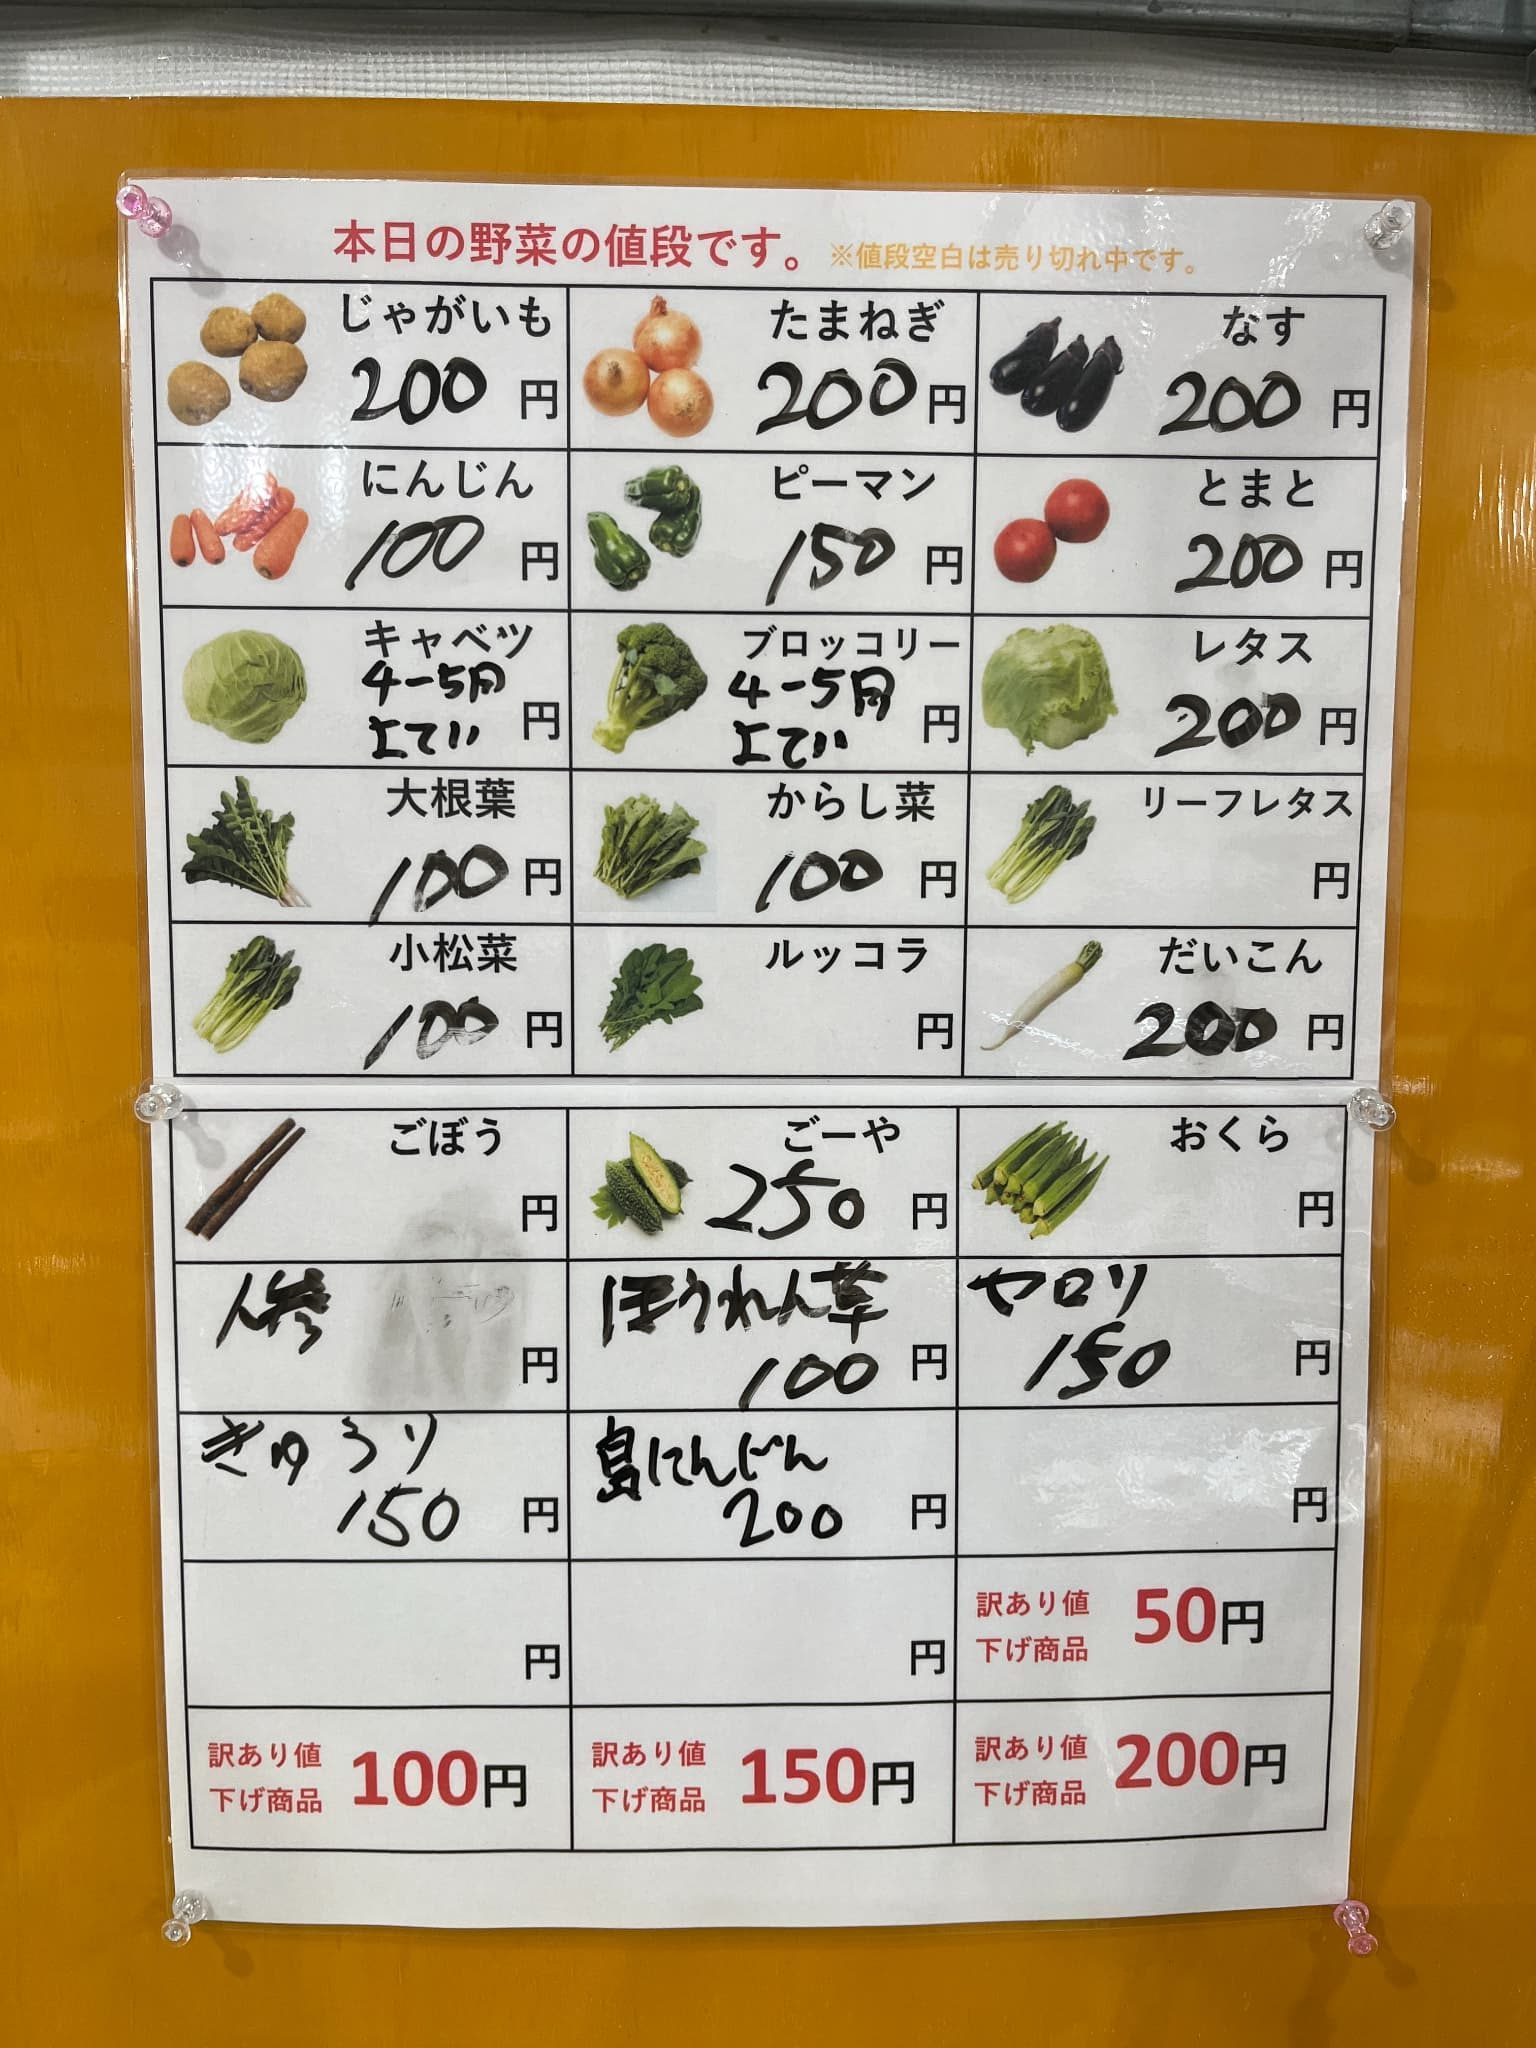 本日の野菜の値段です。 ※値段空白は売り切れ中です。
じゃがいも
200 円
たまねぎ
200 円
なす
200 円
にんじん
100 円
ピーマン
150 円
とまと
200 円
キャベツ
4-5月
よてい 円
ブロッコリー
4-5月
よてい 円
レタス
200 円
大根葉
100 円
からし菜
100 円
リーフレタス
円
小松菜
100 円
ルッコラ
円
だいこん
200 円
ごぼう
円
ごーや
250 円
おくら
円
人参
円
ほうれん草
100 円
ヤロリ
150 円
きゅうり
150 円
島にんじん
200 円
円
円
円
訳あり値
下げ商品 50円
訳あり値
下げ商品 100円
訳あり値
下げ商品 150円
訳あり値
下げ商品 200円